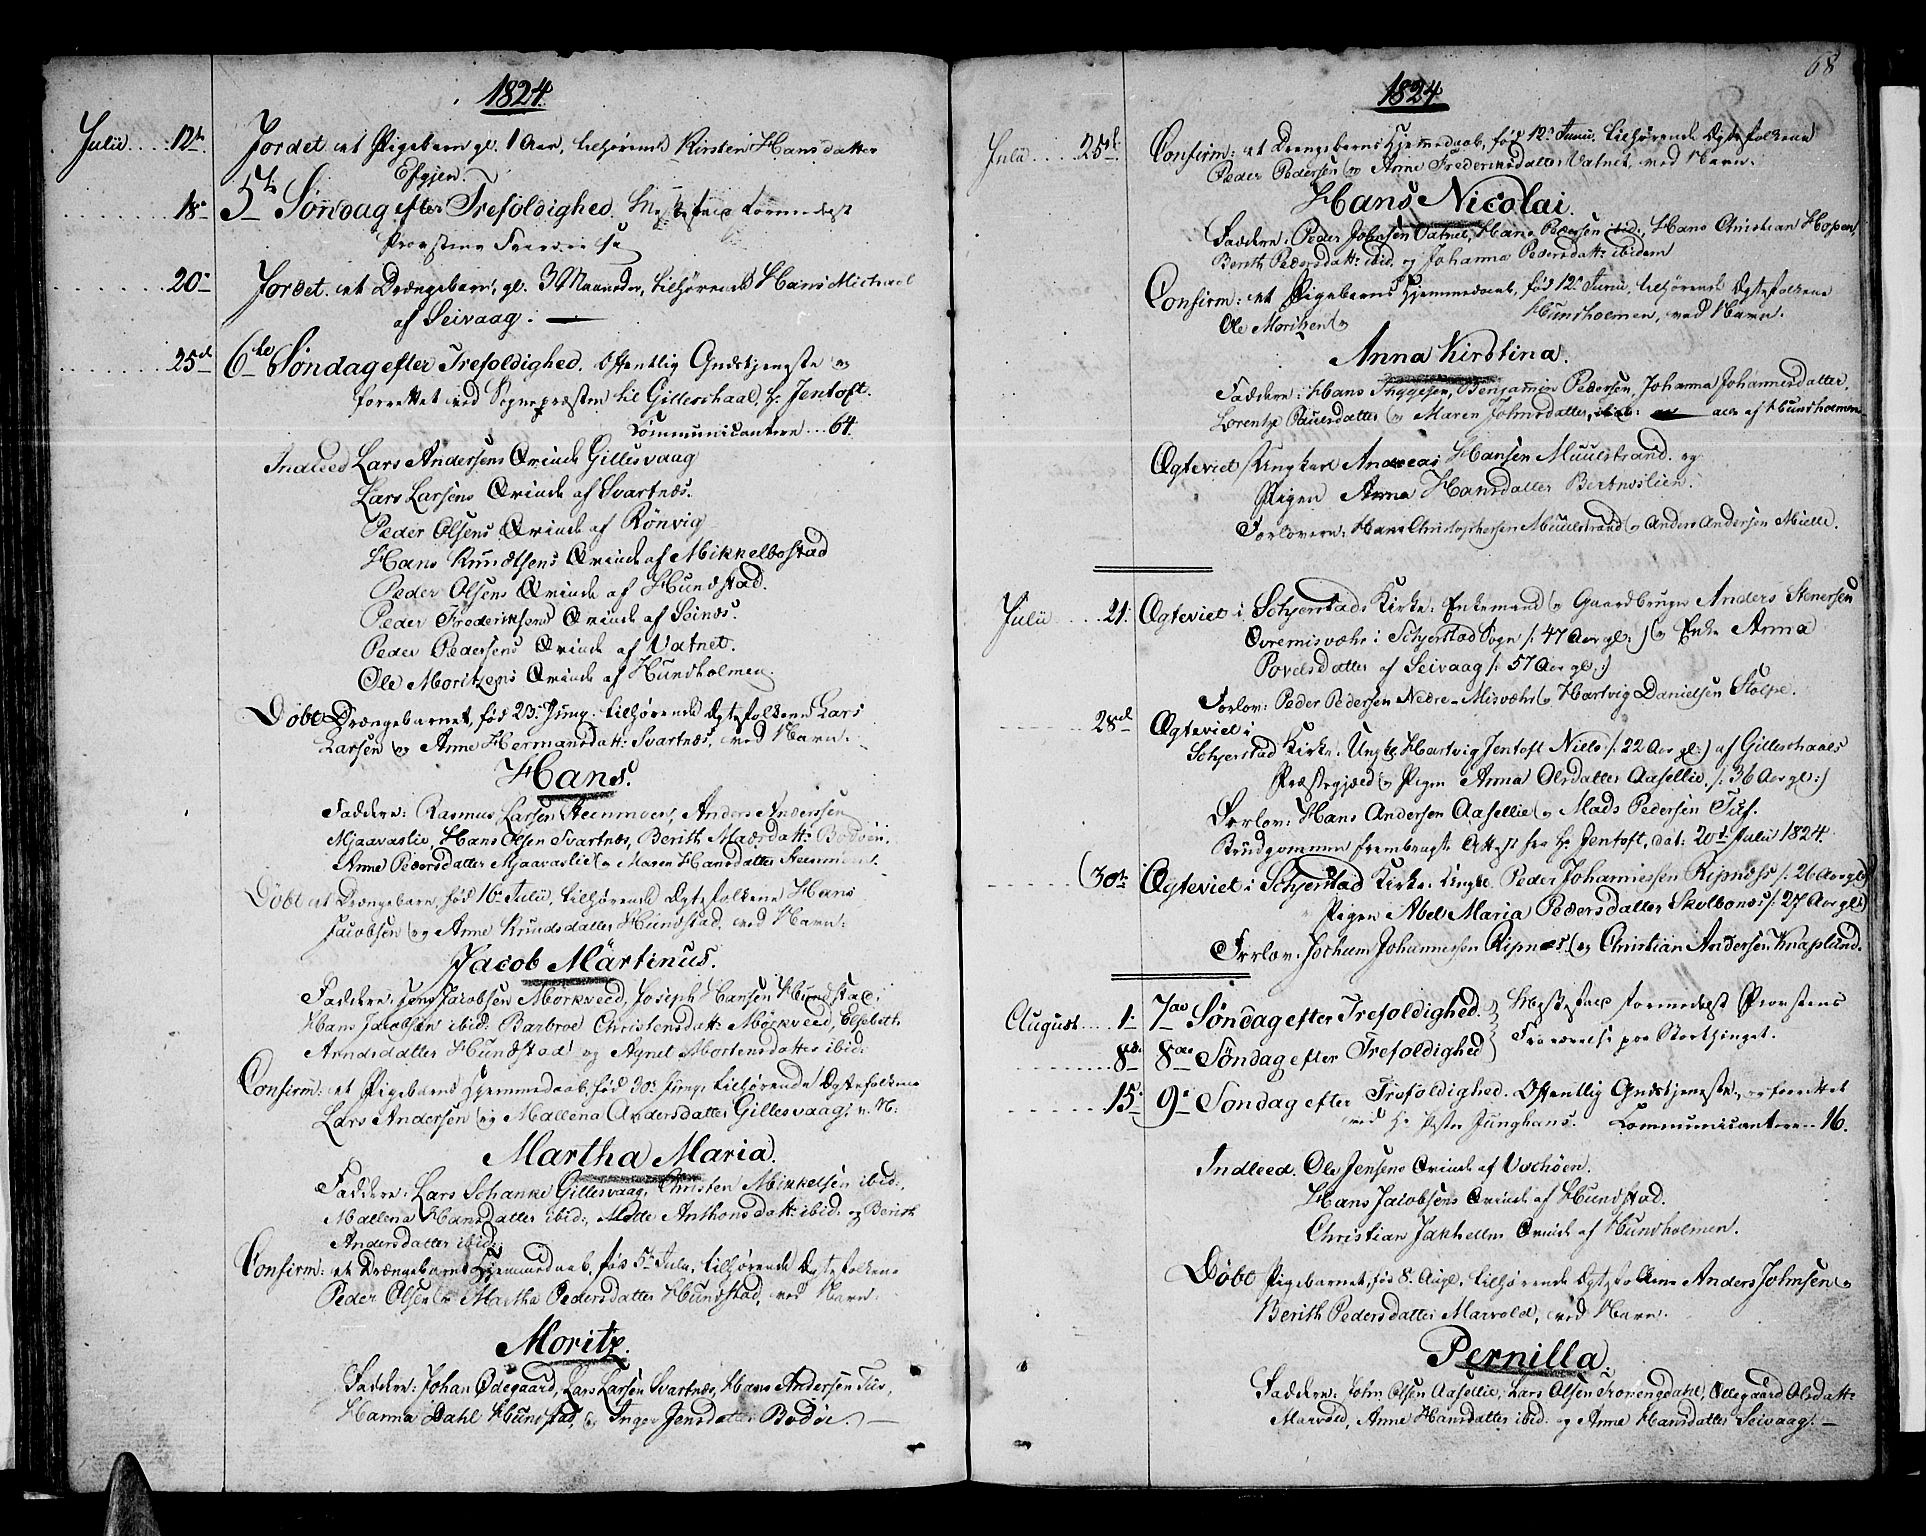 1824.
Julii 12te Jordet et Pigebarn gl. 1 Aar, tilhørende Kirsten Hansdatter
Efgjen.
18de 5te Søndag efter Trefoldighed. Messefald formedelst
Provstens Fraværelse
20de Jordet et Drængebarn, gl. 3 Maaneder, tilhørende Hans Michael
af Seivaag.
25de 6te Søndag efter Trefoldighed. Offentlig Gudstjeneste
forrettet ved Sognepræsten til Gilleschaal, Hr. Jentoft.
Communicantere 64.
Indleed Lars Andersens Qvinde Gillesvaag
Lars Larsens Qvinde af Svartnæs.
Peder Olsens Qvinde af Rönvig
Hans Knudtsens Qvinde af Mikkelbostad
Peder Olsens Qvinde af Hundstad.
Peder Frederiksens Qvinde af Seinæs.
Peder Pedersens Qvinde af Vatnet.
Ole Moritzens Qvinde af Hundholmen.
Døbt Drængebarnet, fød 23. Juny, tilhørende Ægtefolkene Lars
Larsen og Anne Hermansdatt: Svartnæs, ved Navn.
Hans.
Faddere: Rasmus Larsen, Anders Andersen
Mjaavaslie, Hans Olsen Svartnæs, Berith Madsdatt: Bodøen,
Anne Pedersdatter Mjaavaslie og Maren Hansdatter
Døbt et Drængebarn, fød 16 Julii, tilhørende Ægtefolkene Hans
Jacobsen og Anne Knudsdatter Hundstad, ved Navn:
Jacob Martinus.
Faddere: Jens Jacobsen Mörkveed, Joseph Hansen Hundstad,
Hans Jacobsen ibid: Barbroe Christensdatt: Mörkveed, Elsebeth
Arndsdatter Hundstad og Agnet Mortensdatter ibid:
Confirm: et Pigebarns Hjemmedaab, fød 30. Juny, tilhørende Ægtefolkene
Lars Andersen og Mallena Andersdatter Gillesvaag, v. N:
Martha Maria.
Faddere: Lars Schanke Gillesvaag, Christen Mikkelsen ibid:,
Mallena Hansdatter ibid:, Mette Anthonsdatt: ibid: og Berith
Andersdatter ibid:
Confirm: et Drængebarns Hjemmedaab, fød 5te Julii, tilhørende Ægtefolkene
Peder Olsen og Martha Pedersdatter Hundstad, ved Navn
Moritz.
Faddere: Johan Ødegaard, Lars Larsen Svartnæs, Hans Andersen
Hanna Dahl Hundstad, og Inger Jensdatter Bodøe.
68
1824.
Julii 25de Confirm: et Drængebarns Hjemmedaab, fød 12 Junii, tilhørende Ægtefolkene
Peder Pedersen og Anne Frederiksdatter Vatnet, ved Navn.
Hans Nicolai.
Faddere: Peder Johnsen Vatnet, Hans Pedersen ibid:, Hans Christian Hopen,
Berith Pedersdatt: ibid. og Johanna Pedersdatt: ibidem
Confirm: et Pigebarns Hjemmedaab, fød 12 Junii, tilhørende Ægtefolkene
Ole Moritzen og Hundholmen, ved Navn.
Anna Kirstina.
Faddere: Hans Tryggesen, Benjamin Pedersen, Johanna Johannesdatter,
Lorentze Paulsdatter og Maren Johnsdatter, alle af Hundholmen
Ægteviet Ungkarl Andreas Hansen Muulstrand og
Pigen Anna Hansdatter Bertneslien.
Forlovere: Hans Christophersen Muulstrand og Anders Andersen Mielle.
Julii 21. Ægteviet i Schjerstads Kirke: Enkemand og Gaardbruger Anders Stenersen
Øvremisvær i Schjerstad Sogn /: 47 Aar gl: :/ og Enke Anna
Povelsdatter af Seivaag /: 57 Aar gl. :/
Forlov: Peder Pedersen Nedre-Misvær og Hartvig Danielsen Stolpe.
28de Ægteviet i
Schjerstad Kirke. Ungk. Hartvig Jentoft Niels /: 22 Aar gl: :/ af Gilleschaals
Præstegjæld og Pigen Anna Olsdatter Aaselie /: 36 Aar gl: :/
Forlov: Hans Andersen Aaselie og Mads Pedersen Tuf.
Brudgommen frembragte Attest fra Hr. Jentoft, dat: 20de Julii 1824.
30te Ægteviet i Schjerstad Kirke. Ungk. Peder Johannessen Ripnæss /: 26 Aar gl:
Pigen Abel Maria Pedersdatter Skolbones /: 27 Aar gl:
Forlov: Jochum Johannessen Ripnes og Christian Andersen Knaplund.
August 1. 7de Søndag efter Trefoldighed. Messefald formedelst Provstens
8de 8de Søndag efter Trefoldighed Fraværelse paa Storthinget.
15. 9de Søndag efter Trefoldighed. Offentlig Gudstjeneste, forrettet
ved Hr. Junghans. Communicantere 16.
Indleed. Ole Jensens Qvinde af Vochøen.
Hans Jacobsens Qvinde af Hundstad.
Christian Jakhelln Qvinde af Hundholmen.
Døbt Pigebarnet, fød 8. Aug., tilhørende Ægtefolkene Anders Johnsen og
Berith Pedersdatter Marvold, ved Navn.
Pernilla.
Faddere: John Olsen Aaselie, Lars Olsen Tverrengdahl, Ollegaard Olsdatt:
Marvold, Anne Hansdatter ibid. og Anne Hansdatter Seivaag.